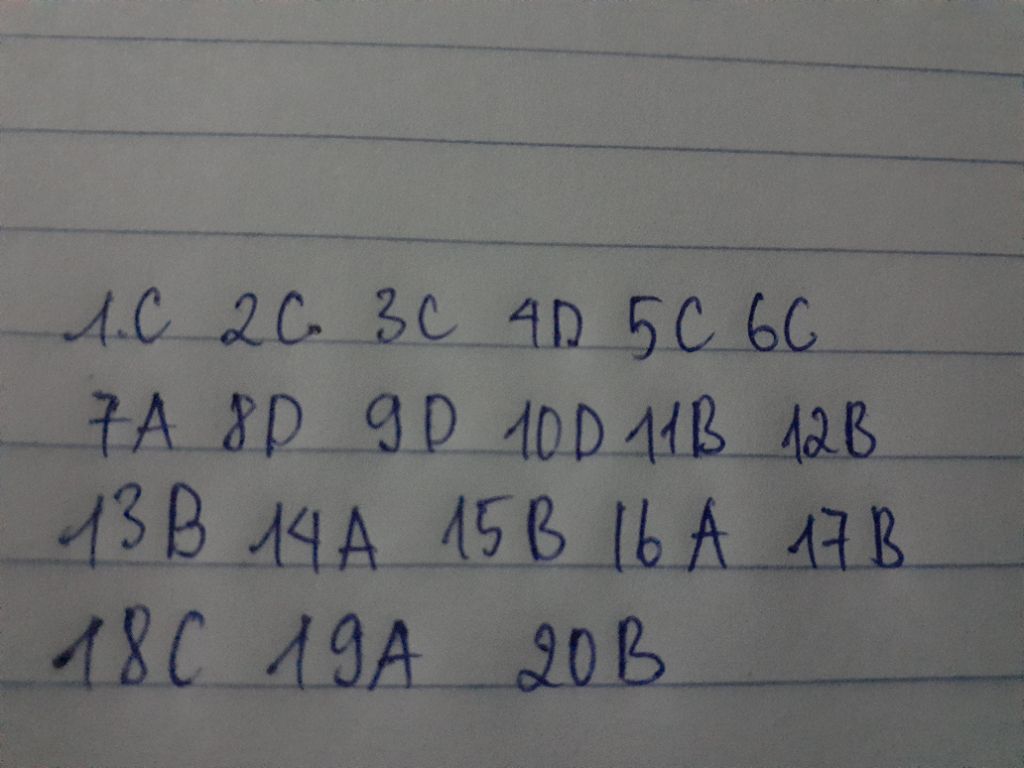 1.C 2C. 3C 4D 5C 6C
7A 8D 9D 10D 11B 12B
13B 14A 15B 16A 17B
18C 19A 20B